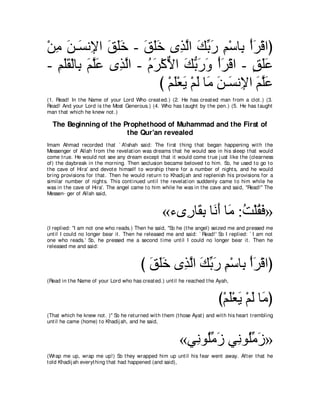 اقْرَأْ بِاسْمِ رَبِّكَ الَّذِى خَلَقَ - خَلَقَ الإِنسَـنَ مِنْ
عَلَقٍ - اقْرَأْ وَرَبُّكَ الاٌّكْرَمُ - الَّذِى عَلَّمَ بِالْقَلَمِ -
عَلَّمَ الإِنسَـنَ مَا لَمْ يَعْلَمْ )
(1. Read! In the Name of your Lord Who created.) (2. He has created man from a clot.) (3.
Read! And your Lord is the Most Generous.) (4. Who has taught by the pen.) (5. He has taught
man that which he knew not.)
The Beginning of the Prophethood of Muhammad and the First of
the Qur'an revealed
Imam Ahmad recorded that `A'ishah said: The first thing that began happening with the
Messenger of Allah from the revelation was dreams that he would see in his sleep that would
come true. He would not see any dream except that it would come true just like the (clearness
of) the daybreak in the morning. Then seclusion became beloved to him. So, he used to go to
the cave of Hira' and devote himself to worship there for a number of nights, and he would
bring provisions for that. Then he would return to Khadijah and replenish his provisions for a
similar number of nights. This continued until the revelation suddenly came to him while he
was in the cave of Hira'. The angel came to him while he was in the cave and said, "Read!" The
Messen- ger of Allah said,
«فَقُلْتُ: مَا أَنَا بِقَارِىءٍ»
(I replied: "I am not one who reads.) Then he said, "So he (the angel) seized me and pressed me
until I could no longer bear it. Then he released me and said: `Read!' So I replied: `I am not
one who reads.' So, he pressed me a second time until I could no longer bear it. Then he
released me and said:
اقْرَأْ بِاسْمِ رَبِّكَ الَّذِى خَلَقَ )
(Read in the Name of your Lord who has created.) until he reached the Ayah,
(مَا لَمْ يَعْلَمْ)
(That which he knew not.)" So he returned with them (those Ayat) and with his heart trembling
until he came (home) to Khadijah, and he said,
«زَمِّلُونِي زَمِّلُونِي»
(Wrap me up, wrap me up!) So they wrapped him up until his fear went away. After that he
told Khadijah everything that had happened (and said),